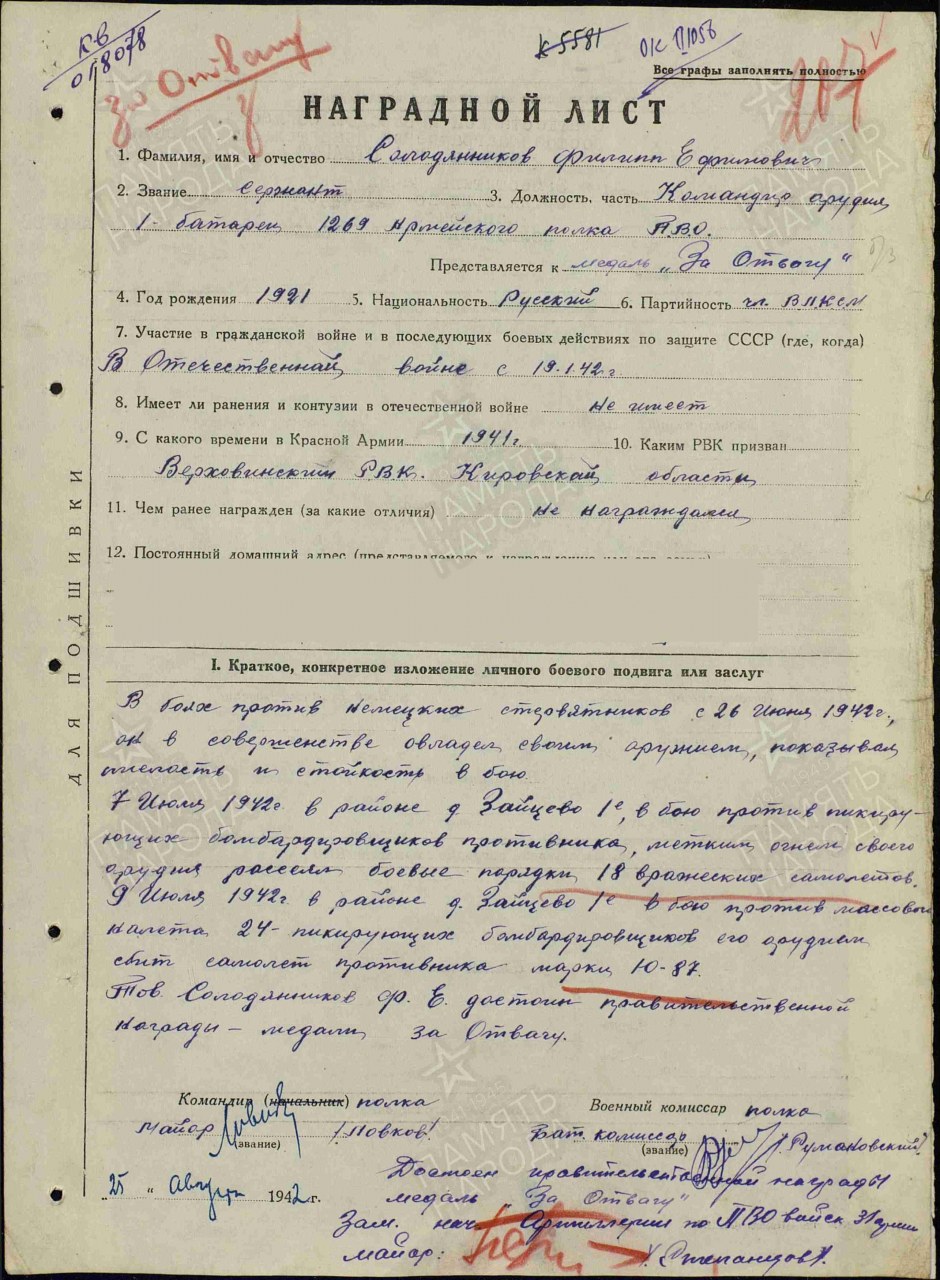 КВ
018078
За Отвагу
К 5581
207
Все графы заполнять полностью
НАГРАДНОЙ ЛИСТ
1. Фамилия, имя и отчество Солодянников Филипп Ефимович
2. Звание Сержант 3. Должность, часть Командир орудия
1- батареи 1269 Армейского полка П.В.О.
Представляется к медаль „За Отвагу“
4. Год рождения 1921 5. Национальность Русский 6. Партийность чл. ВЛКСМ
7. Участие в гражданской войне и в последующих боевых действиях по защите СССР (где, когда)
В Отечественной войне с 19.1.42 г.
8. Имеет ли ранения и контузии в отечественной войне не имеет
9. С какого времени в Красной Армии 1941 г. 10. Каким РВК призван
Верховинским РВК. Кировской области
11. Чем ранее награжден (за какие отличия) не награждался
12. Постоянный домашний адрес (представляемого к награждению или его семьи)
ДЛЯ ПОДШИВКИ
I. Краткое, конкретное изложение личного боевого подвига или заслуг
В боях против немецких стервятников с 26 Июня 1942 г.,
он в совершенстве овладел своим оружием, показывал
смелость и стойкость в бою.
7 Июля 1942 г. в районе д. Зайцево 1е, в бою против пикиру-
ющих бомбардировщиков противника, метким огнем своего
орудия рассеял боевые порядки 18 вражеских самолетов.
9 Июля 1942 г. в районе д. Зайцево 1е в бою против массового
налета 24- пикирующих бомбардировщиков его орудием
сбит самолет противника марки Ю-87.
Тов. Солодянников Ф. Е. достоин правительственной
награды - медали за Отвагу.
Командир (начальник) полка
Военный комиссар полка
Майор /Ловков/
(звание)
Бат. комиссар /Румановский/
(звание)
„25“ Августа 1942 г.
Достоен правительственной награды
медаль „За Отвагу“
Зам. нач. Артиллерии по ПВО войск 31 армии
майор:
ПАМЯТЬ НАРОДА